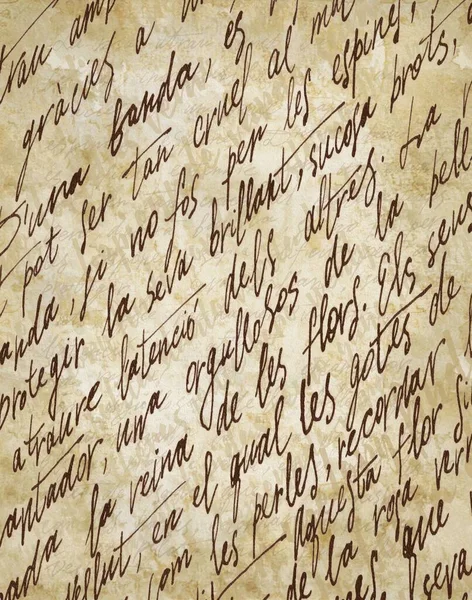 gràcies a
D'una banda, és
pot ser tan cruel al
anda, si no fos per les espines,
protegir la seva brillant, sucosa brots,
atraure latenció dels altres. La
antador, una orgullosos de la bell
nada la reina de les flors. Els seus
vellut, en el qual les gotes de
com les perles, recordar
aquesta flor
de la rosa
que
seva